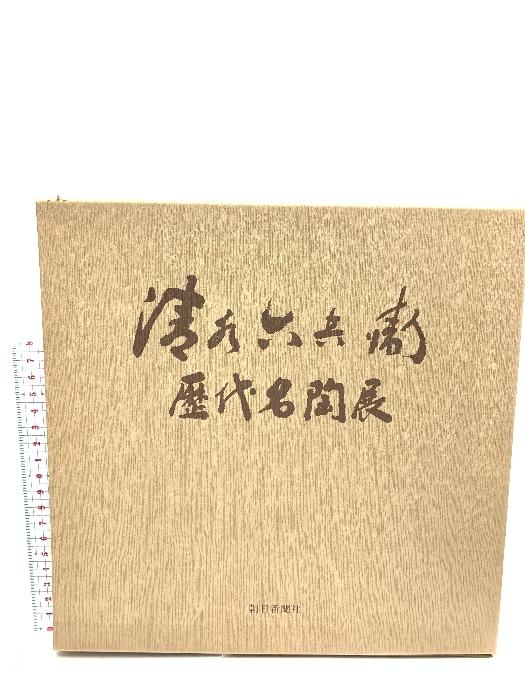 清水六兵衞
歴代名陶展
朝日新聞社